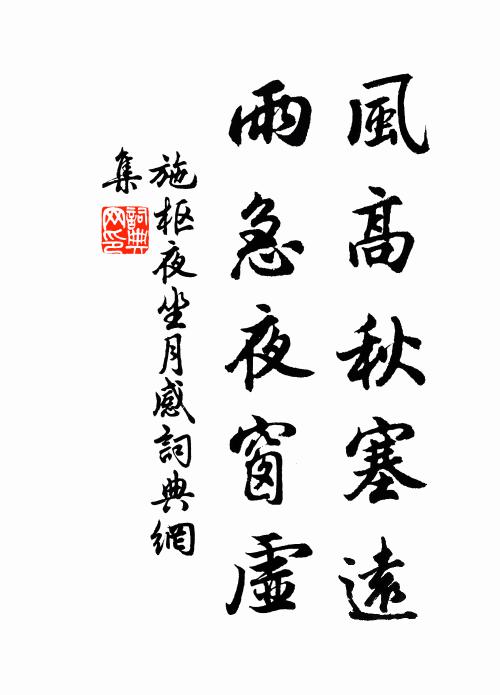 風高秋塞遠
雨急夜窗虛
施枢夜坐月感詞典網
集
詞典网印